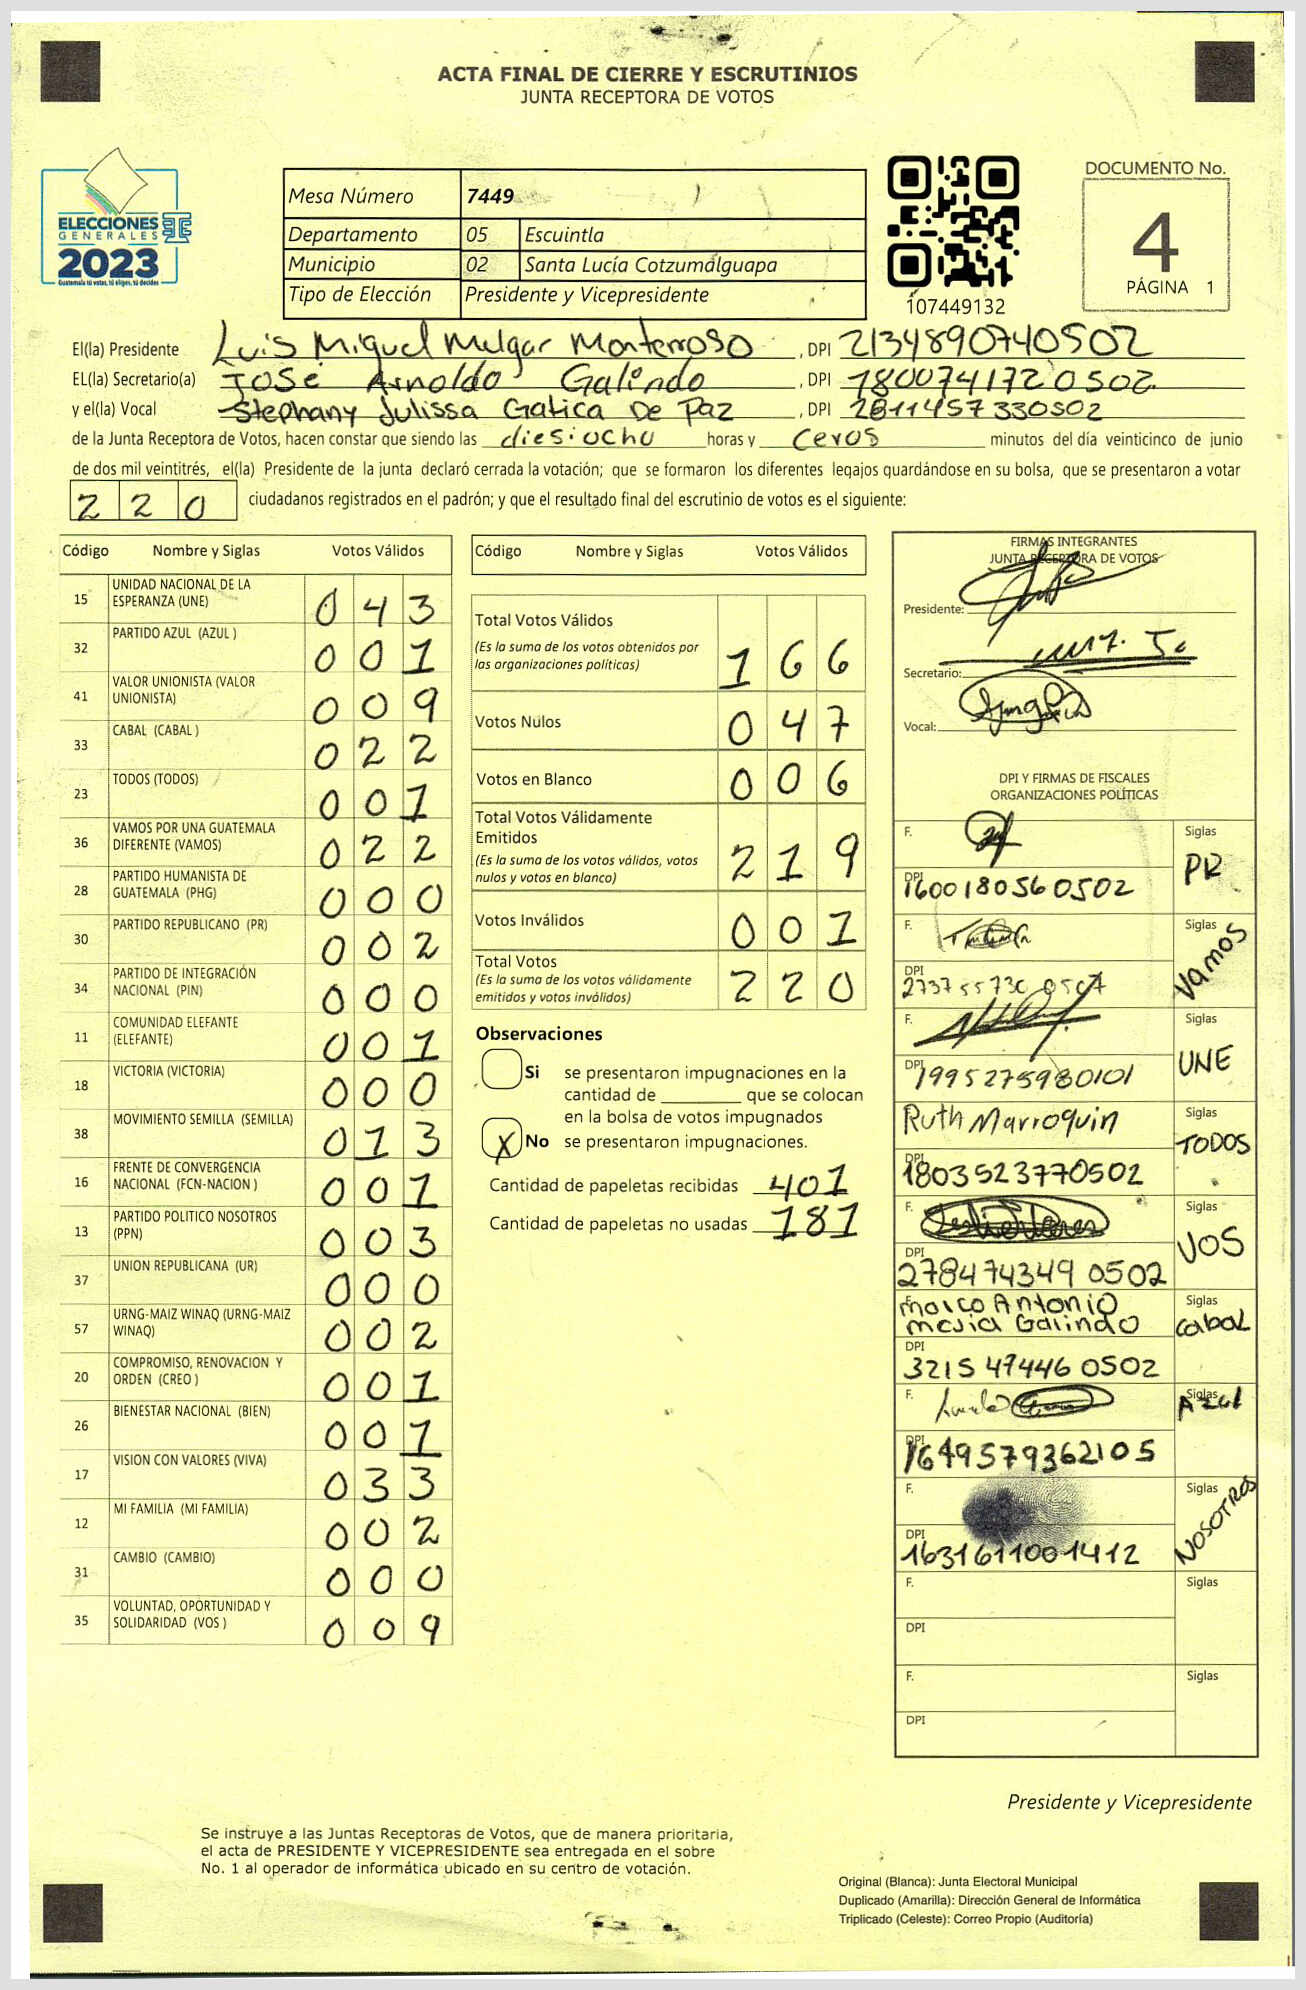 ACTA FINAL DE CIERRE Y ESCRUTINIOS
JUNTA RECEPTORA DE VOTOS
ELECCIONES
GENERALES
2023
Guatemala tú votas, tú eliges, tú decides
Mesa Número 7449
Departamento 05 Escuintla
Municipio 02 Santa Lucía Cotzumalguapa
Tipo de Elección Presidente y Vicepresidente
107449132
DOCUMENTO No.
4
PÁGINA 1
El(la) Presidente Luis Miguel Melgar Monterroso , DPI 2134890740502
EL(la) Secretario(a) José Arnoldo Galindo , DPI 1800741720502
y el(la) Vocal Stephany Julissa Gatica De Paz , DPI 2811457330502
de la Junta Receptora de Votos, hacen constar que siendo las diesiocho horas y ceros minutos del día veinticinco de junio
de dos mil veintitrés, el(la) Presidente de la junta declaró cerrada la votación; que se formaron los diferentes legajos guardándose en su bolsa, que se presentaron a votar
220 ciudadanos registrados en el padrón; y que el resultado final del escrutinio de votos es el siguiente:
Código Nombre y Siglas Votos Válidos
15 UNIDAD NACIONAL DE LA ESPERANZA (UNE) 043
32 PARTIDO AZUL (AZUL ) 001
41 VALOR UNIONISTA (VALOR UNIONISTA) 009
33 CABAL (CABAL ) 022
23 TODOS (TODOS) 001
36 VAMOS POR UNA GUATEMALA DIFERENTE (VAMOS) 022
28 PARTIDO HUMANISTA DE GUATEMALA (PHG) 000
30 PARTIDO REPUBLICANO (PR) 002
34 PARTIDO DE INTEGRACIÓN NACIONAL (PIN) 000
11 COMUNIDAD ELEFANTE (ELEFANTE) 001
18 VICTORIA (VICTORIA) 000
38 MOVIMIENTO SEMILLA (SEMILLA) 013
16 FRENTE DE CONVERGENCIA NACIONAL (FCN-NACION ) 001
13 PARTIDO POLITICO NOSOTROS (PPN) 003
37 UNION REPUBLICANA (UR) 000
57 URNG-MAIZ WINAQ (URNG-MAIZ WINAQ) 002
20 COMPROMISO, RENOVACION Y ORDEN (CREO ) 001
26 BIENESTAR NACIONAL (BIEN) 001
17 VISION CON VALORES (VIVA) 033
12 MI FAMILIA (MI FAMILIA) 002
31 CAMBIO (CAMBIO) 000
35 VOLUNTAD, OPORTUNIDAD Y SOLIDARIDAD (VOS ) 009
Código Nombre y Siglas Votos Válidos
Total Votos Válidos
(Es la suma de los votos obtenidos por
las organizaciones políticas) 166
Votos Nulos 047
Votos en Blanco 006
Total Votos Válidamente
Emitidos
(Es la suma de los votos válidos, votos
nulos y votos en blanco) 219
Votos Inválidos 001
Total Votos
(Es la suma de los votos válidamente
emitidos y votos inválidos) 220
Observaciones
Si se presentaron impugnaciones en la
cantidad de ________ que se colocan
en la bolsa de votos impugnados
X No se presentaron impugnaciones.
Cantidad de papeletas recibidas 401
Cantidad de papeletas no usadas 181
FIRMAS INTEGRANTES
JUNTA RECEPTORA DE VOTOS
Presidente:
Secretario:
Vocal:
DPI Y FIRMAS DE FISCALES
ORGANIZACIONES POLÍTICAS
F. Siglas PR
DPI 1600180560502
F. Siglas Vamos
DPI
F. Siglas UNE
DPI 1995275980101
Ruth Marroquin Siglas TODOS
DPI 1803523770502
F. Siglas VOS
DPI 2784743490502
F. Marco Antonio
Mejia Galindo Siglas Cabal
DPI 3215474460502
F. Siglas Azul
DPI 1649579362105
F. Siglas NOSOTROS
DPI 1631611001412
F. Siglas
DPI
F. Siglas
DPI
Presidente y Vicepresidente
Se instruye a las Juntas Receptoras de Votos, que de manera prioritaria,
el acta de PRESIDENTE Y VICEPRESIDENTE sea entregada en el sobre
No. 1 al operador de informática ubicado en su centro de votación.
Original (Blanca): Junta Electoral Municipal
Duplicado (Amarilla): Dirección General de Informática
Triplicado (Celeste): Correo Propio (Auditoría)